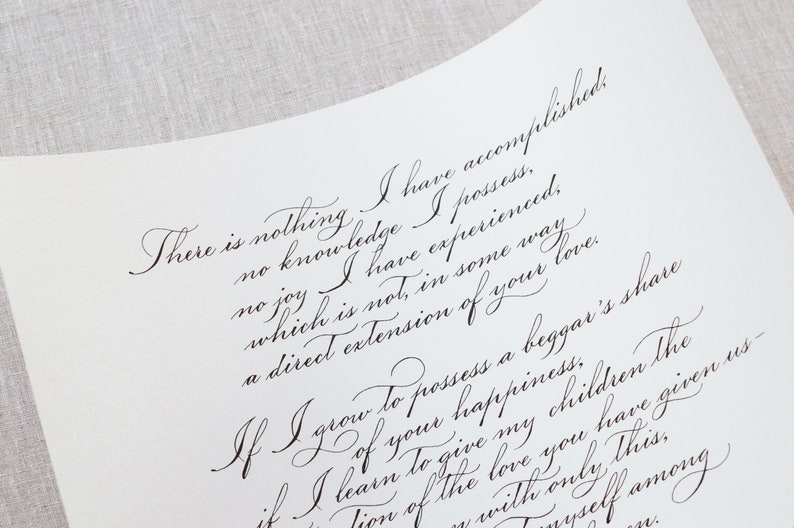 There is nothing I have accomplished,
no knowledge I possess,
no joy I have experienced,
which is not, in some way
a direct extension of your love.
If I grow to possess a beggar's share
of your happiness,
if I learn to give my children the
of the love you have given us–
with only this,
myself among